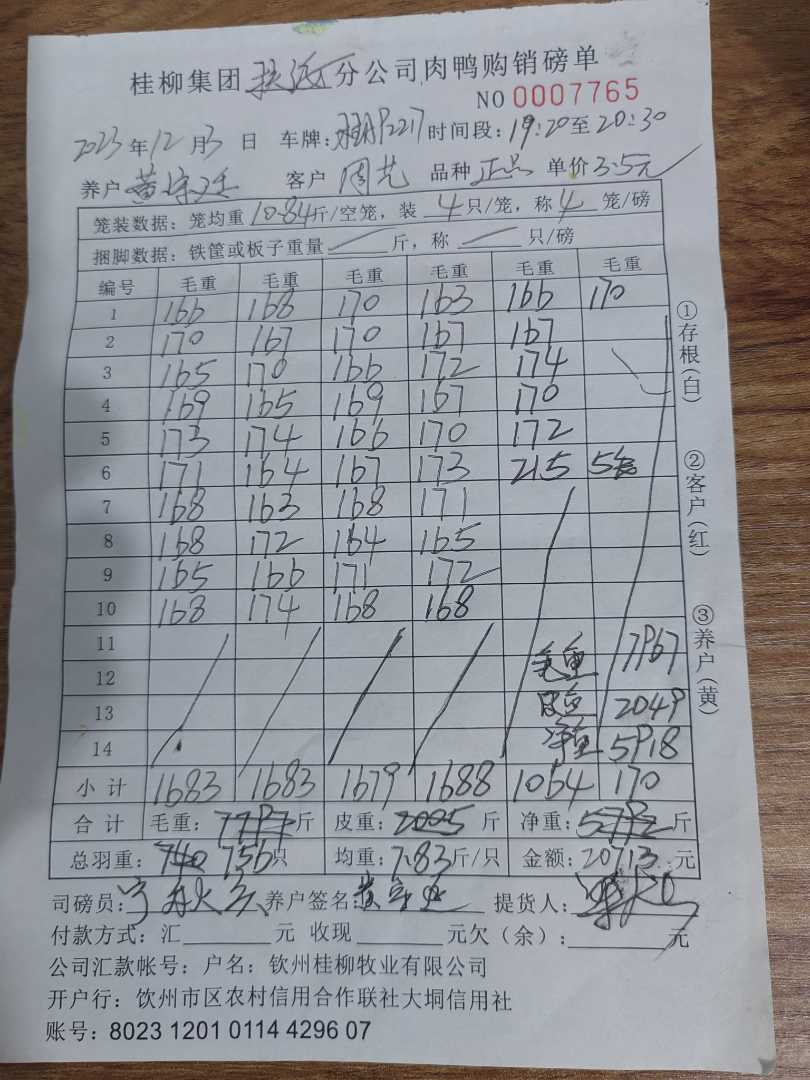 桂柳集团 扶沅 分公司肉鸭购销磅单
NO 0007765
2023 年 12 月 3 日 车牌: AP2217 时间段: 19:20 至 20:30
养户 黄 客户 周艺 品种 正品 单价 3.5元
笼装数据: 笼均重 10.84 斤/空笼, 装 4 只/笼, 称 4 笼/磅
捆脚数据: 铁筐或板子重量 斤, 称 只/磅
编号 毛重 毛重 毛重 毛重 毛重 毛重
1 166 168 170 163 166 170
2 170 167 170 167 167
3 165 170 166 172 174
4 169 165 169 167 170
5 173 174 166 170 172
6 171 164 167 173 215 5笼
7 168 163 168 171
8 168 172 164 165
9 165 166 171 172
10 168 174 168 168
11
12 毛重 7967
13 皮重 2049
14 净重 5918
小计 1683 1683 1679 1688 1064 170
合计 毛重: 7797 斤 皮重: 2005 斤 净重: 5792 斤
总羽重: 740 756 只 均重: 7.83 斤/只 金额: 20713 元
司磅员: 养户签名: 提货人:
付款方式: 汇 元 收现 元欠(余): 元
公司汇款帐号: 户名: 钦州桂柳牧业有限公司
开户行: 钦州市区农村信用合作联社大垌信用社
账号: 8023 1201 0114 4296 07
①存根(白)
②客户(红)
③养户(黄)